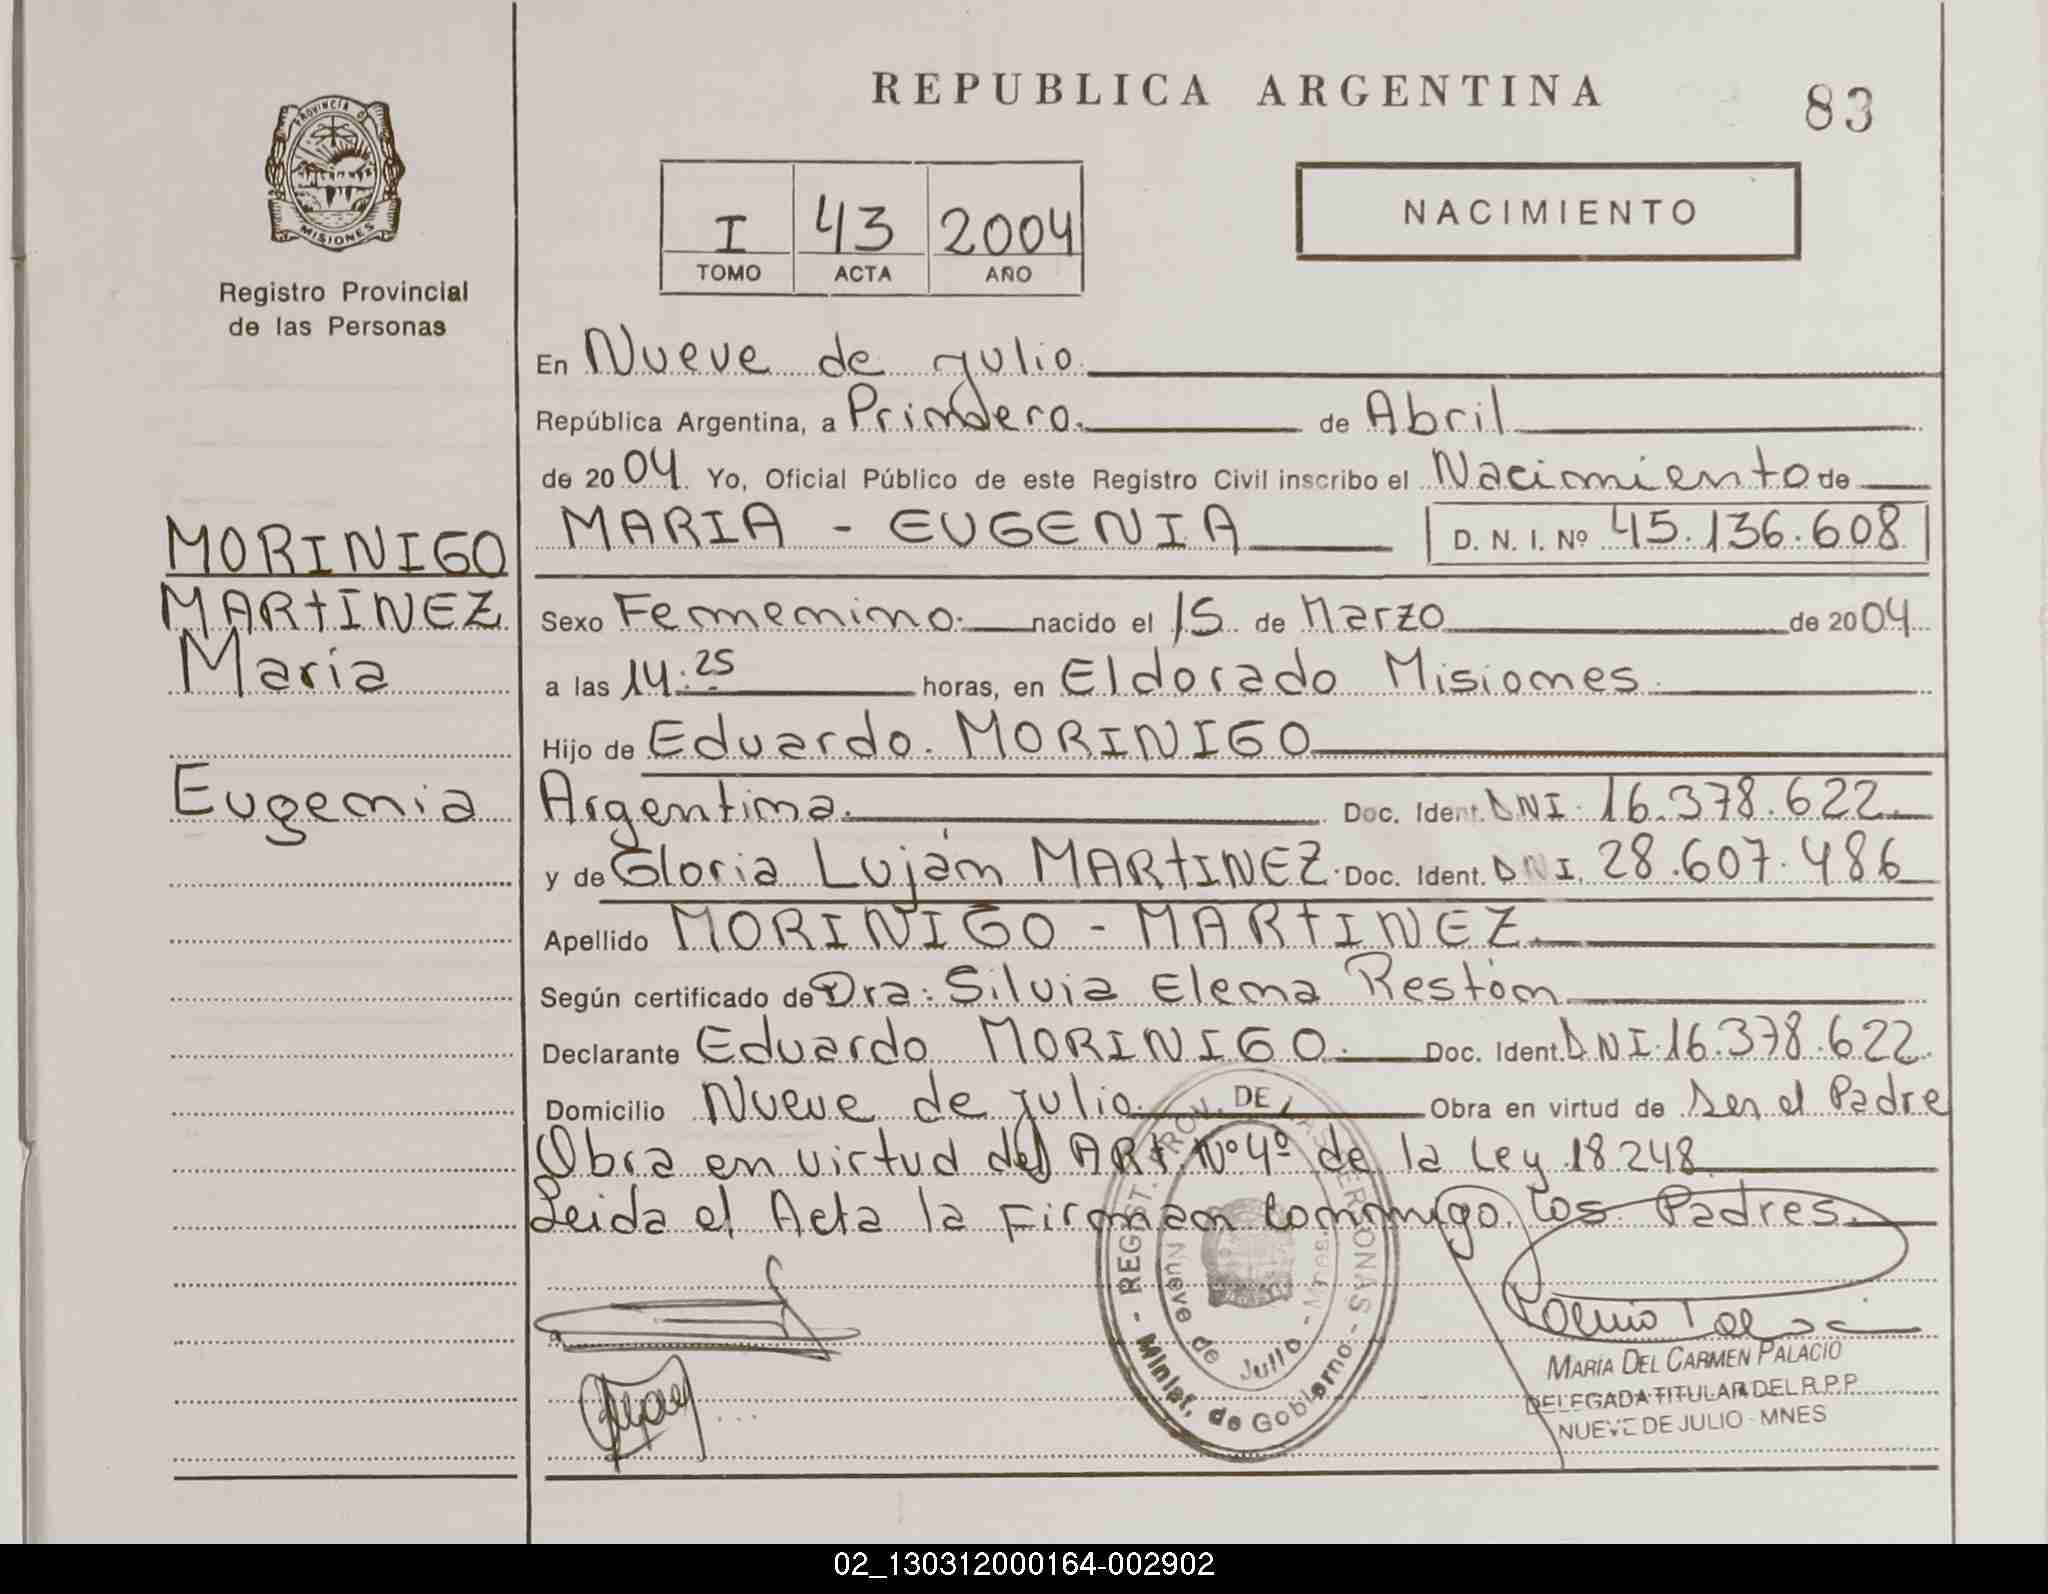 REPUBLICA ARGENTINA
83
PROVINCIA DE MISIONES
Registro Provincial
de las Personas
I 43 2004
TOMO ACTA AÑO
NACIMIENTO
MORINIGO
MARTINEZ
Maria
Eugenia
En Nueve de julio.
República Argentina, a Primero. de Abril
de 2004. Yo, Oficial Público de este Registro Civil inscribo el Nacimiento de
MARIA - EUGENIA D. N. I. Nº 45.136.608
Sexo Femenino. nacido el 15 de Marzo de 2004
a las 14:25 horas, en Eldorado Misiones.
Hijo de Eduardo. MORINIGO
Argentina. Doc. Ident. DNI. 16.378.622.
y de Gloria Luján MARTINEZ. Doc. Ident. DNI. 28.607.486
Apellido MORINIGO - MARTINEZ.
Según certificado de Dra: Silvia Elena Restóm
Declarante Eduardo MORINIGO. Doc. Ident. DNI. 16.378.622.
Domicilio Nueve de julio. Obra en virtud de Ser el Padre
Obra en virtud del ART. Nº 4º de la Ley 18248.
Leida el Acta la Firman conmigo los Padres.
REGIST. PROV. DE LAS PERSONAS
- Minist. de Gobierno -
Nueve de Julio - Mnes.
MARÍA DEL CARMEN PALACIO
DELEGADA TITULAR DEL R.P.P
NUEVE DE JULIO - MNES
02_130312000164-002902